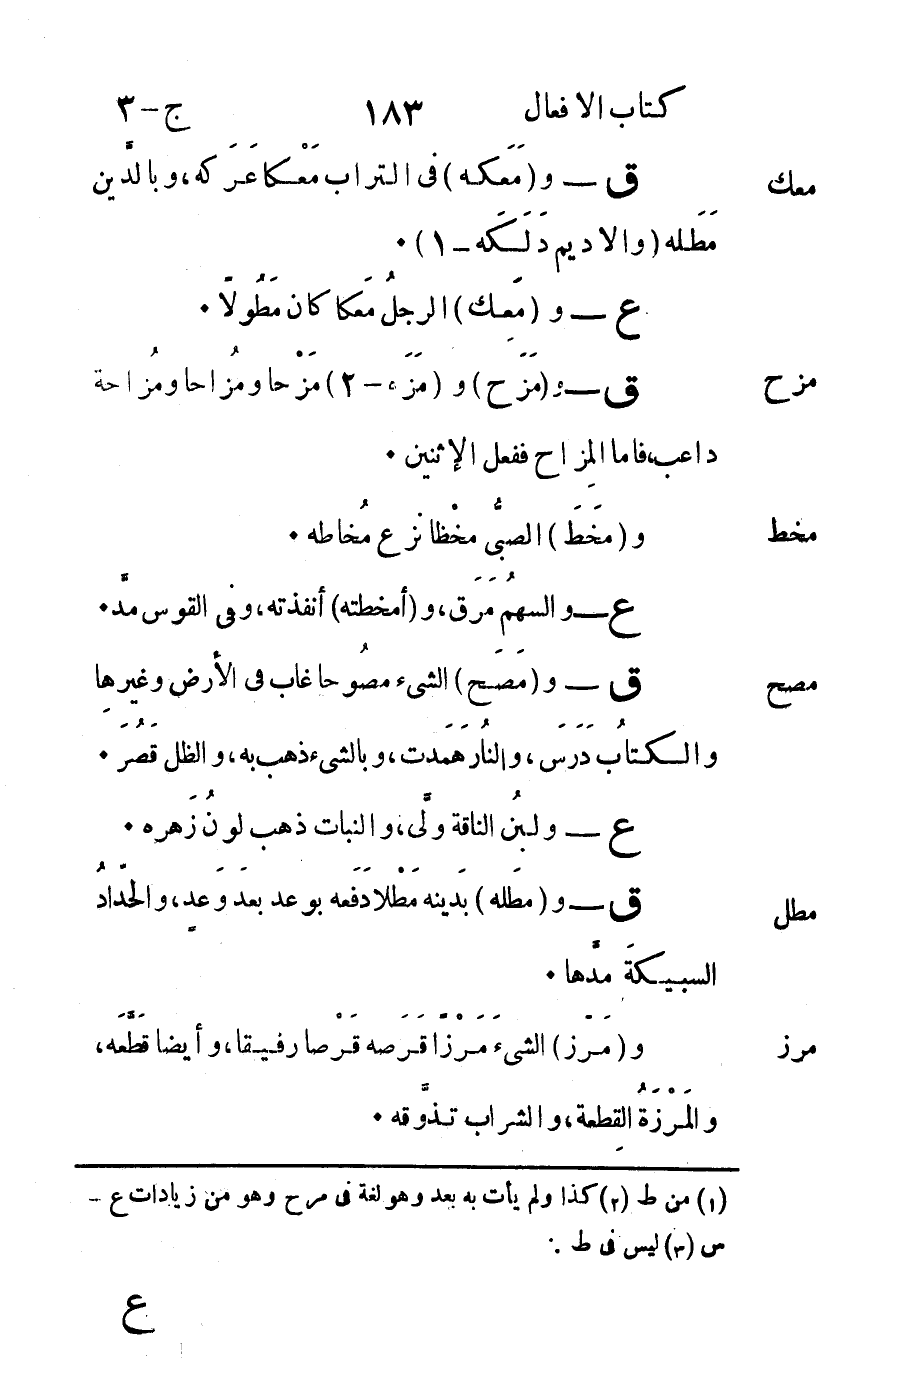 كتاب الافعال ١٨٣ ج-٣
معك ق — و (مَعَكه) فى التراب مَعْكا عَرَ كه، وبالدَّين
مَطَله (والاديم دَلَكَه - ١) ٠
ع — و (مَعِك) الرجلُ مَعَكا كان مَطُولاً ٠
مزح ق — و(مَزَح) و (مَزَء - ٢) مَزْحا ومُزاحا ومُزاحة
داعب، فاما المِزاح ففعل الإثنين ٠
مخط و (مَخَطَ) الصبىُّ مخْظا نزع مُخاطه ٠
ع — والسهمُ مَرَق، و (أمخطته) أنفذته، وفى القوس مدَّ ٠
مصح ق — و (مَصَح) الشىء مصُوحا غاب فى الأرض وغيرِها
والكتابُ دَرَس، والنارُ هَمَدَت، وبالشىء ذهب به، والظل قَصُرَ ٠
ع — ولبنُ الناقة ولَّى، والنبات ذهب لونُ زَهره ٠
مطل ق — و (مطَله) بِدَينه مَطْلا دَفَعه بوعد بعدَ وَعدٍ، والحدّادُ
السبيكةَ مدَّها ٠
مرز و (مَرّز) الشىءَ مَرْزًا قَرَصه قَرْصا رفيقا، وأيضا قَطَّعَه،
والمَرْزَةُ القِطعة، والشراب تذوَّقه ٠
(١) من ط (٢) كذا ولم يأت به بعد وهو لغة فى مرح وهو من زيادات ع -
س (٣) ليس فى ط ٠
ع